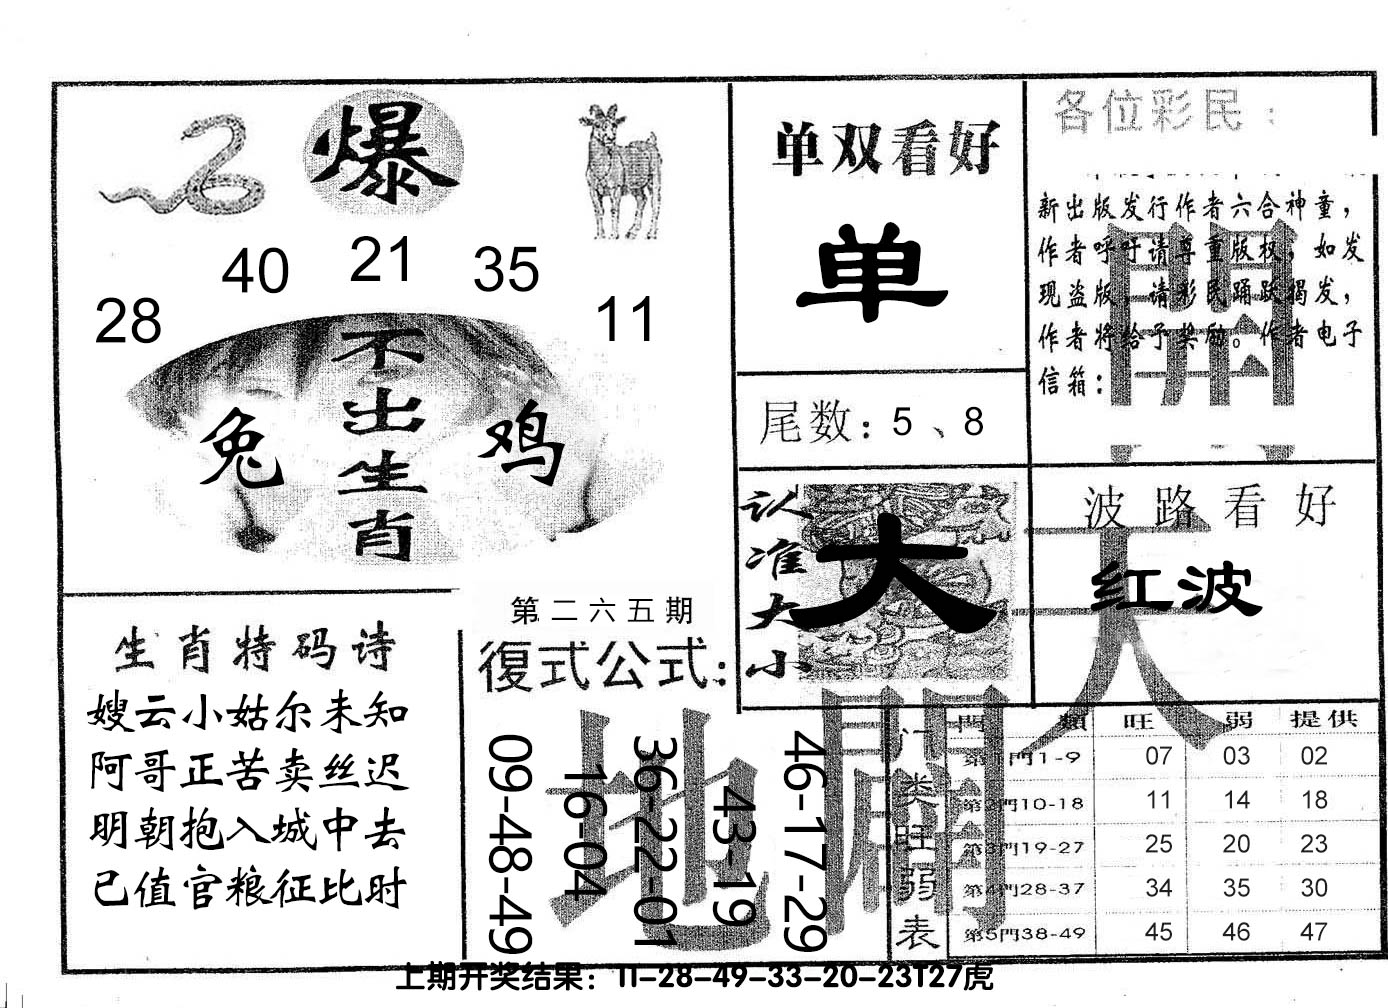 爆
28 40 21 35 11
不出生肖
兔 鸡
单双看好
单
尾数：5、8
各位彩民：
新出版发行作者六合神童，
作者呼吁请尊重版权，如发
现盗版，请彩民踊跃揭发，
作者将给予奖励。作者电子
信箱：
認准大小
大
波路看好
红波
生肖特码诗
嫂云小姑尔未知
阿哥正苦卖丝迟
明朝抱入城中去
已值官粮征比时
第二六五期
復式公式：
09-48-49
16-04
36-22-01
43-19
46-17-29
天
地
開
門类旺弱表
門類 旺 弱 提供
第1門1-9 07 03 02
第2門10-18 11 14 18
第3門19-27 25 20 23
第4門28-37 34 35 30
第5門38-49 45 46 47
上期开奖结果：11-28-49-33-20-23T27虎